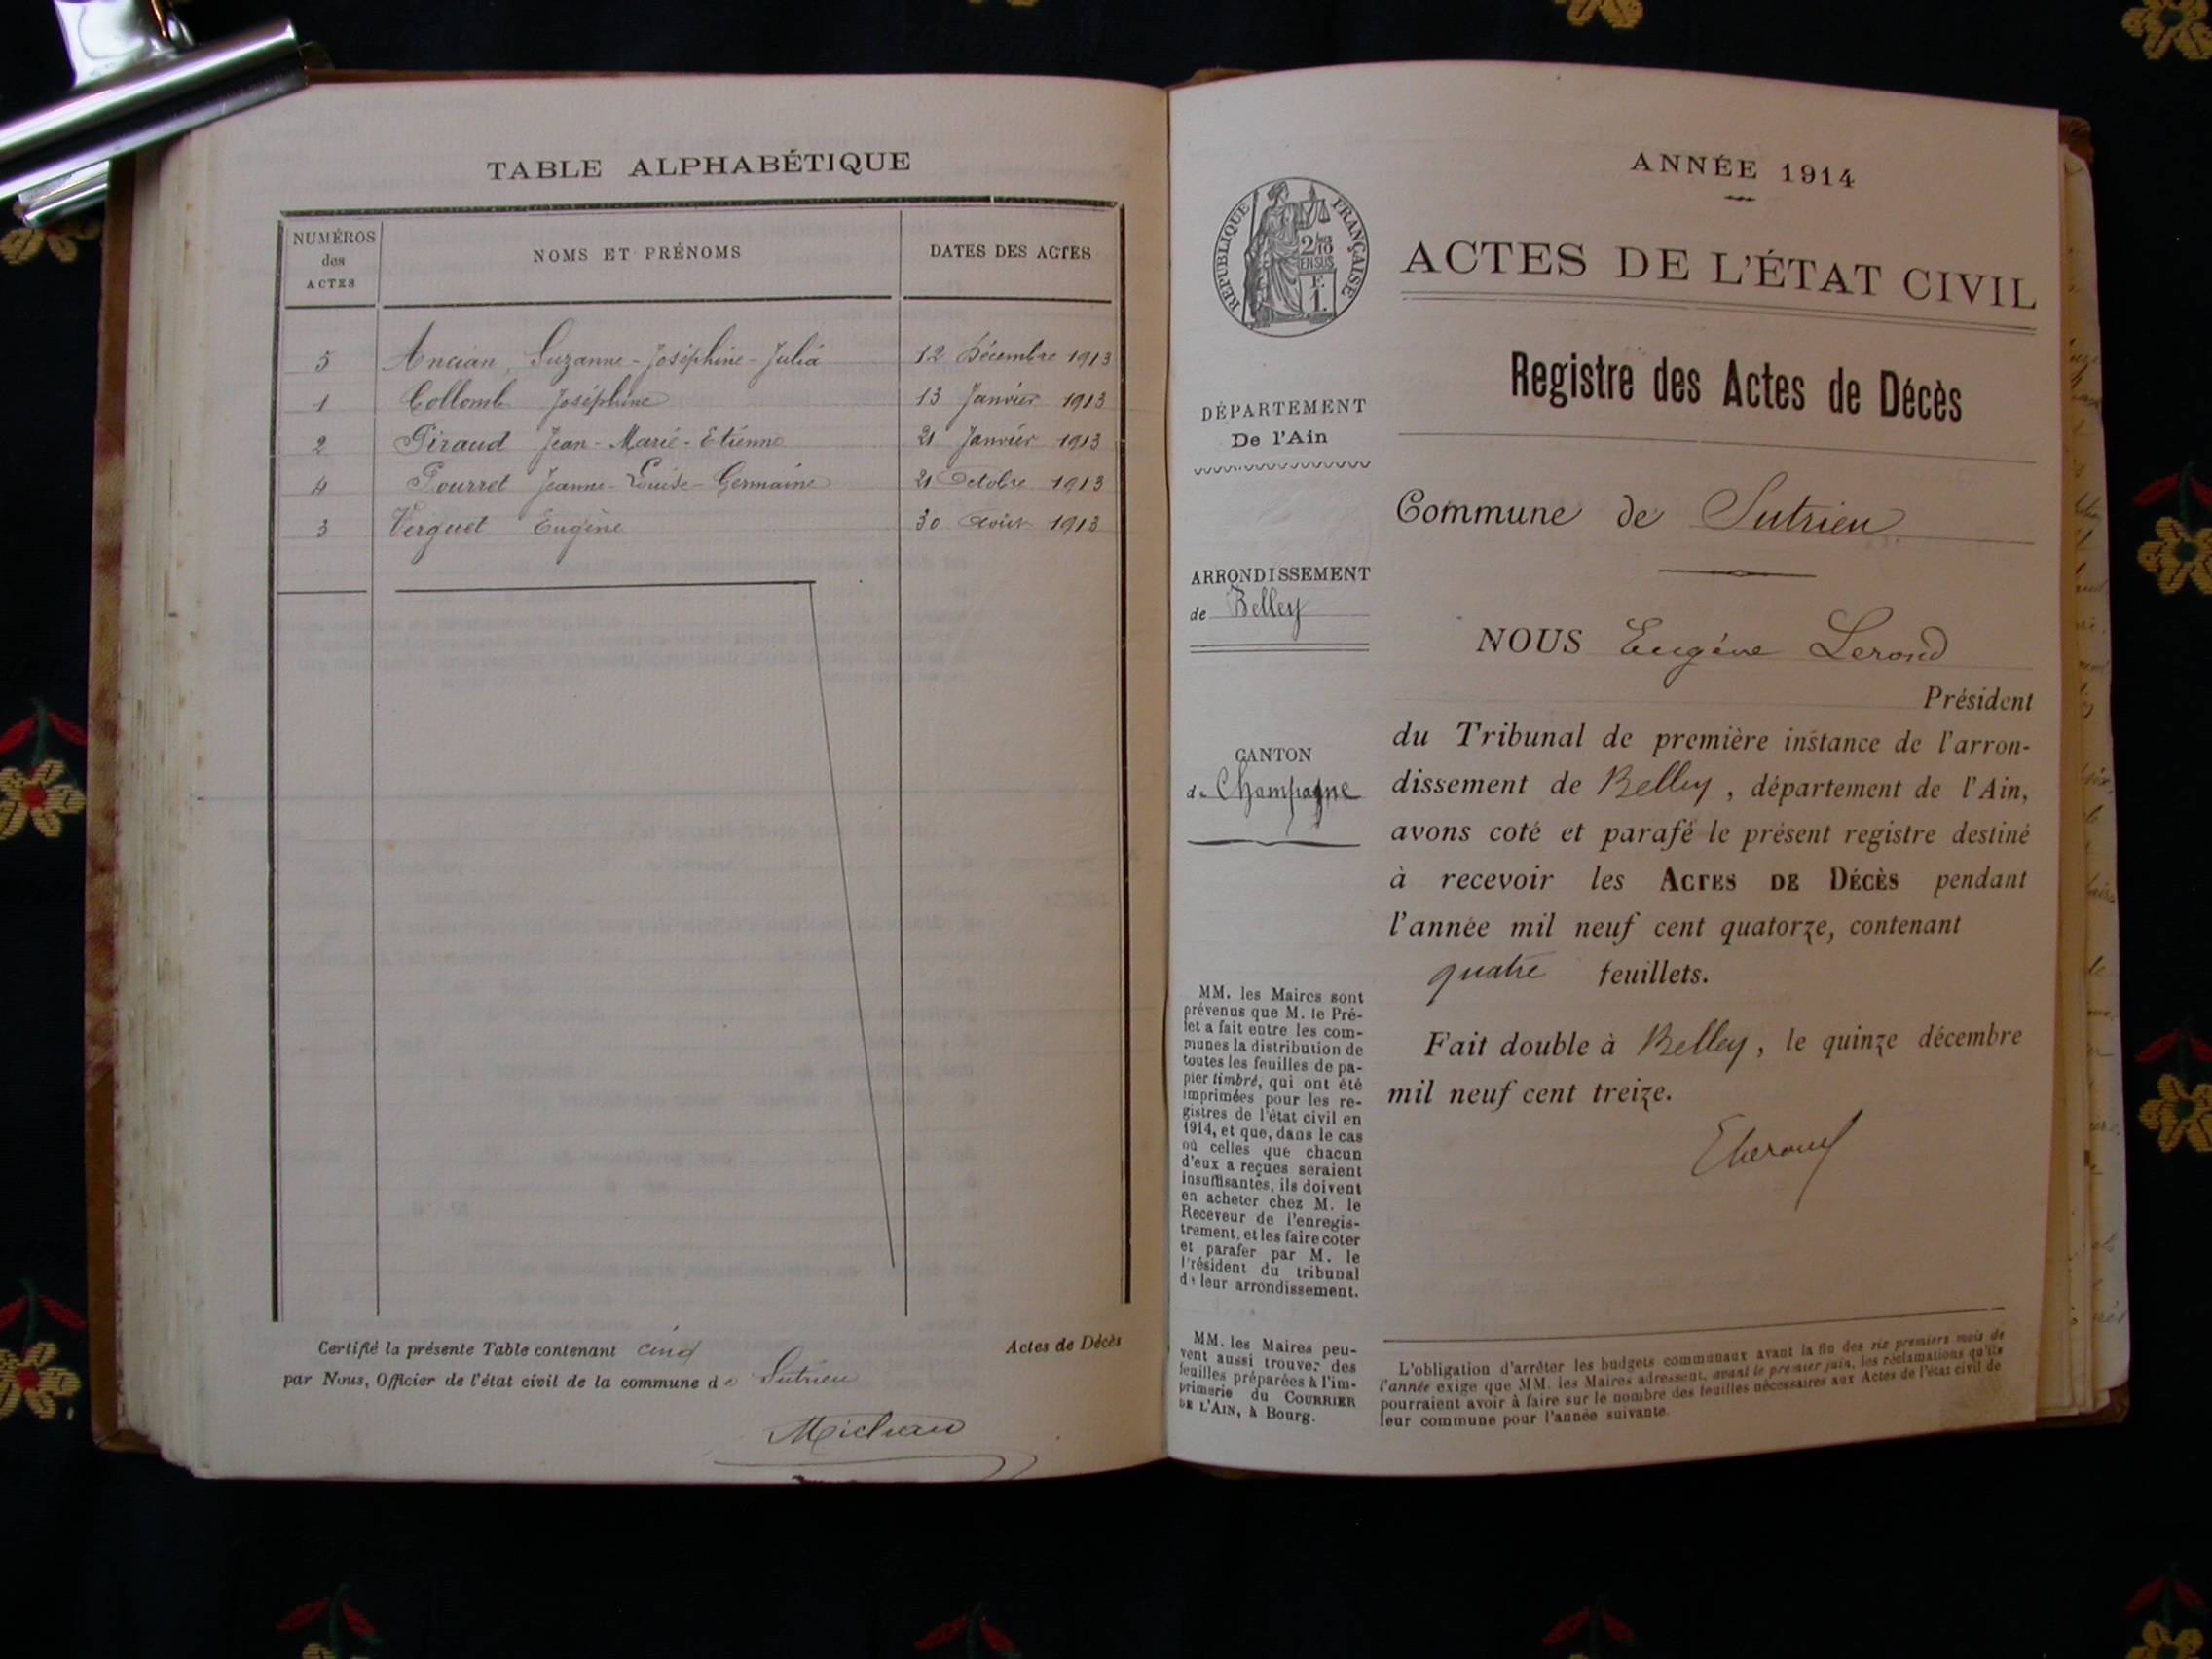 TABLE ALPHABÉTIQUE
NUMÉROS
des
ACTES
NOMS ET PRÉNOMS
DATES DES ACTES
5 Ancian, Suzanne-Joséphine-Julia 12 Décembre 1913
1 Collomb Joséphine 13 Janvier 1913
2 Piraud Jean-Marie-Etienne 21 Janvier 1913
4 Pourret Jeanne-Louise-Germaine 21 Octobre 1913
3 Verguet Eugène 30 Août 1913
Certifié la présente Table contenant cinq Actes de Décès
par Nous, Officier de l'état civil de la commune de Sutrieu
ANNÉE 1914
RÉPUBLIQUE FRANÇAISE
2/10
EN SUS
F.
1.
ACTES DE L'ÉTAT CIVIL
Registre des Actes de Décès
DÉPARTEMENT
De l'Ain
Commune de Sutrieu
ARRONDISSEMENT
de Belley
NOUS Eugène Lerond
Président
du Tribunal de première instance de l'arron-
dissement de Belley, département de l'Ain,
avons coté et parafé le présent registre destiné
à recevoir les ACTES DE DÉCÈS pendant
l'année mil neuf cent quatorze, contenant
quatre feuillets.
Fait double à Belley, le quinze décembre
mil neuf cent treize.
CANTON
de Champagne
MM. les Maires sont
prévenus que M. le Pré-
fet a fait entre les com-
munes la distribution de
toutes les feuilles de pa-
pier timbré, qui ont été
imprimées pour les re-
gistres de l'état civil en
1914, et que, dans le cas
où celles que chacun
d'eux a reçues seraient
insuffisantes, ils doivent
en acheter chez M. le
Receveur de l'enregis-
trement, et les faire coter
et parafer par M. le
Président du tribunal
de leur arrondissement.
MM. les Maires peu-
vent aussi trouver des
feuilles préparées à l'im-
primerie du COURRIER
DE L'AIN, à Bourg.
L'obligation d'arrêter les budgets communaux avant la fin des six premiers mois de
l'année exige que MM. les Maires adressent, avant le premier juin, les réclamations qu'ils
pourraient avoir à faire sur le nombre des feuilles nécessaires aux Actes de l'état civil de
leur commune pour l'année suivante.